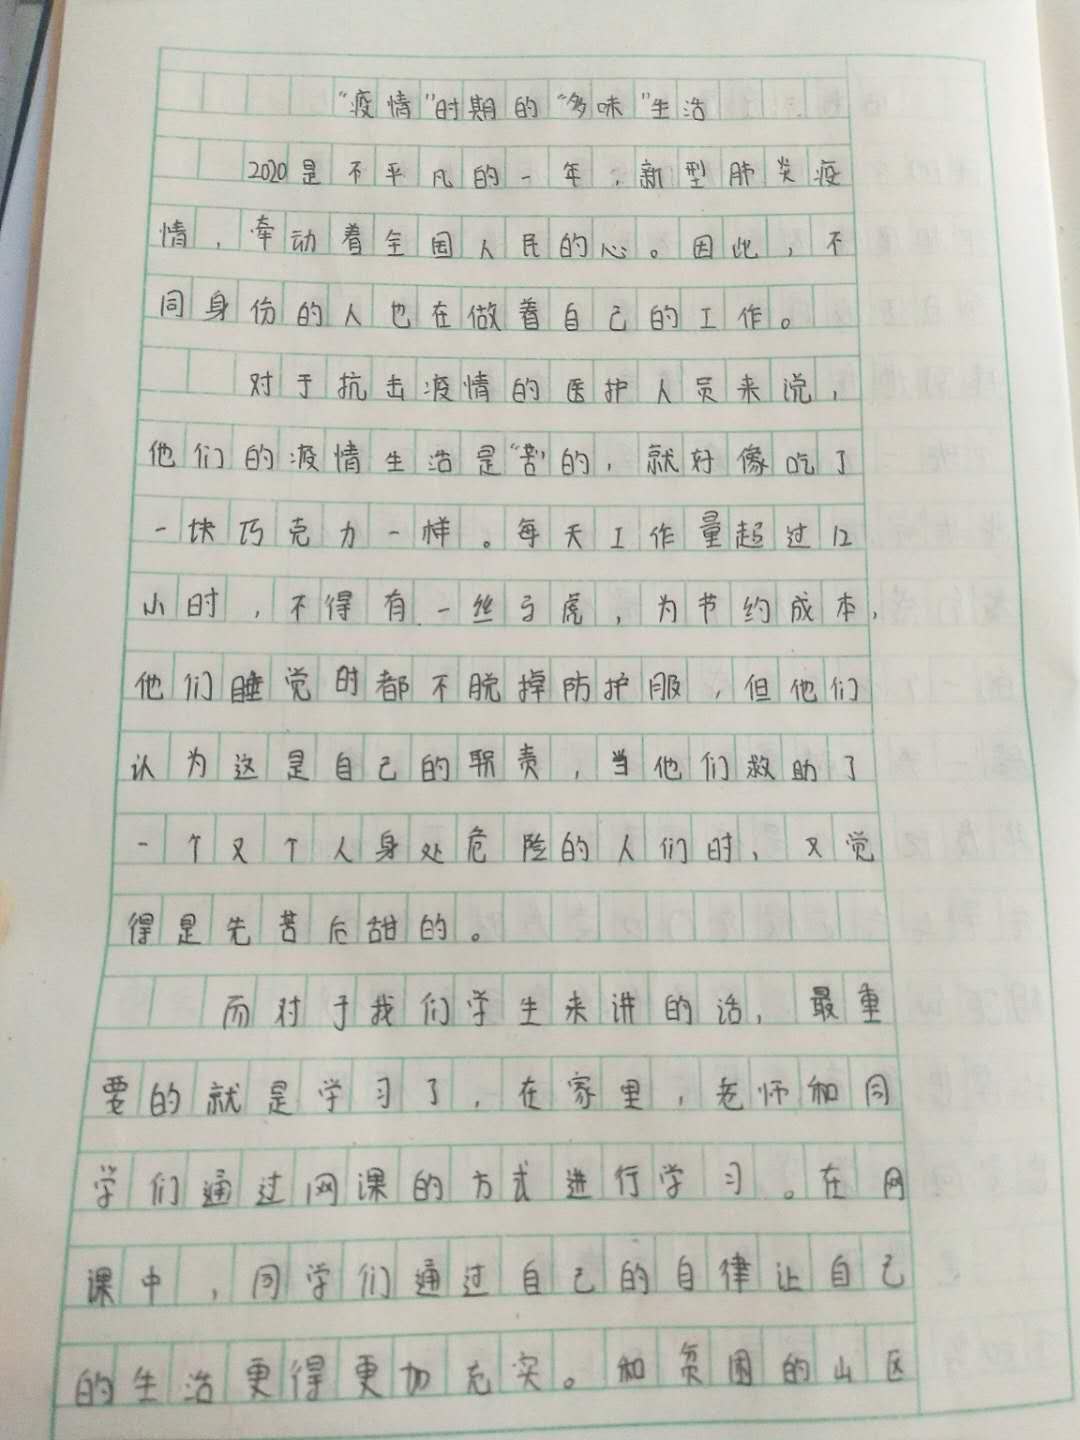 “疫情”时期的“多味”生活
2020是不平凡的一年，新型肺炎疫
情，牵动着全国人民的心。因此，不
同身份的人也在做着自己的工作。
对于抗击疫情的医护人员来说，
他们的疫情生活是“苦”的，就好像吃了
一块巧克力一样。每天工作量超过12
小时，不得有一丝马虎，为节约成本，
他们睡觉时都不脱掉防护服，但他们
认为这是自己的职责，当他们救助了
一个又个人身处危险的人们时，又觉
得是先苦后甜的。
而对于我们学生来讲的话，最重
要的就是学习了，在家里，老师和同
学们通过网课的方式进行学习。在网
课中，同学们通过自己的自律让自己
的生活更得更加充实。和贫困的山区